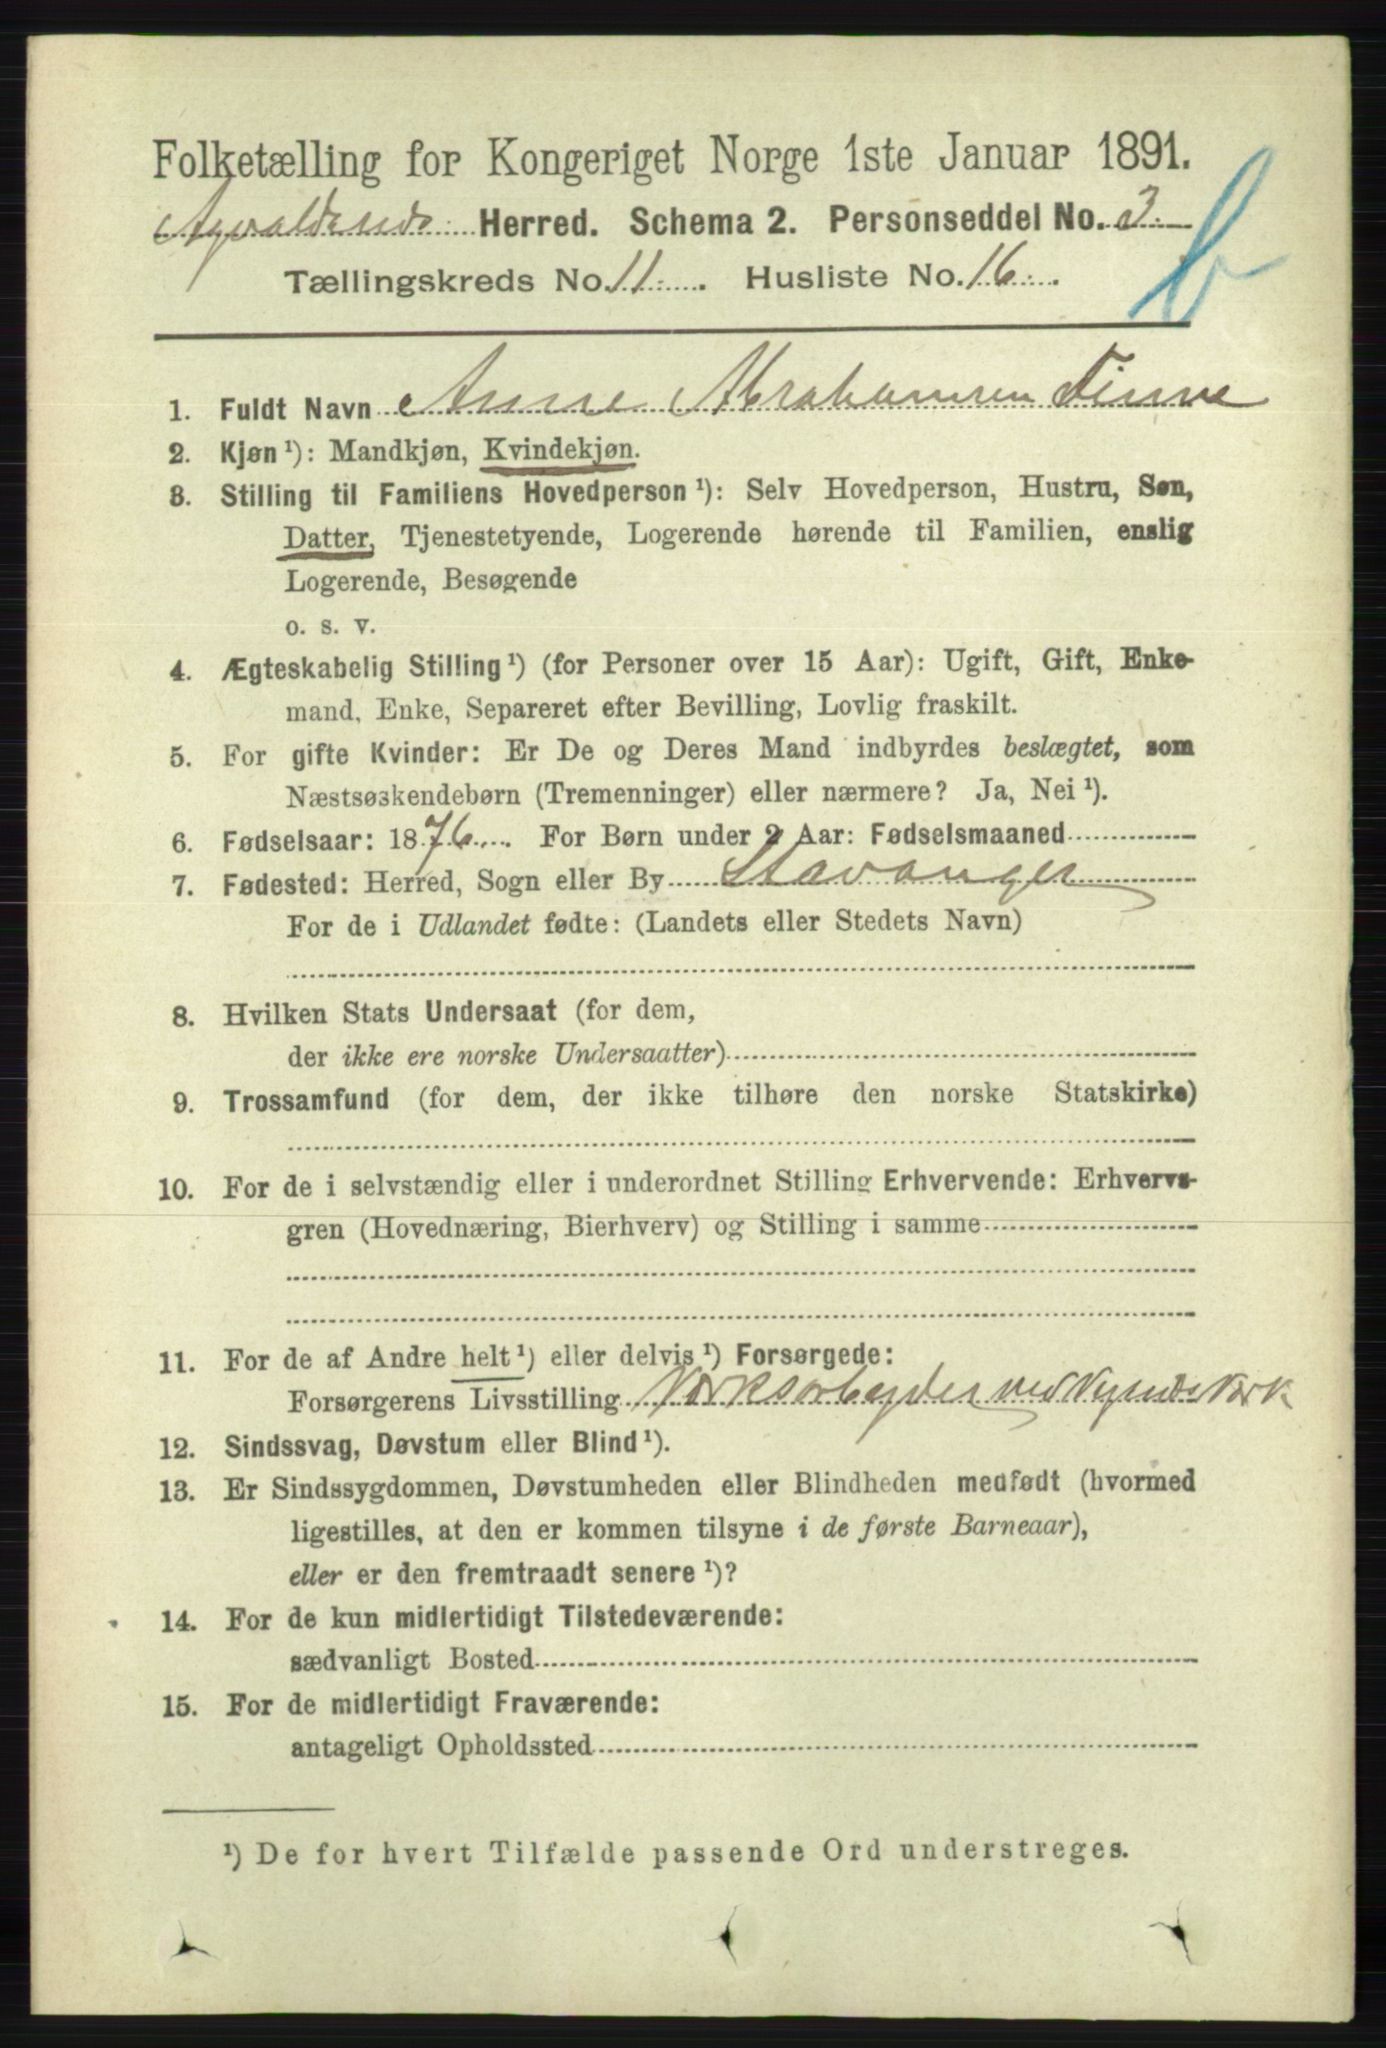 Folketælling for Kongeriget Norge 1ste Januar 1891.
Herred. Schema 2. Personseddel No. 3.
Tællingskreds No. 11. Husliste No. 16.
1. Fuldt Navn Anne Abrahamsen Finne
2. Kjøn ¹): Mandkjøn, Kvindekjøn.
3. Stilling til Familiens Hovedperson ¹): Selv Hovedperson, Hustru, Søn,
Datter, Tjenestetyende, Logerende hørende til Familien, enslig
Logerende, Besøgende
o. s. v.
4. Ægteskabelig Stilling ¹) (for Personer over 15 Aar): Ugift, Gift, Enke-
mand, Enke, Separeret efter Bevilling, Lovlig fraskilt.
5. For gifte Kvinder: Er De og Deres Mand indbyrdes beslægtet, som
Næstsøskendebørn (Tremenninger) eller nærmere? Ja, Nei ¹).
6. Fødselsaar: 1876. For Børn under 2 Aar: Fødselsmaaned
7. Fødested: Herred, Sogn eller By Stavanger
For de i Udlandet fødte: (Landets eller Stedets Navn)
8. Hvilken Stats Undersaat (for dem,
der ikke ere norske Undersaatter)
9. Trossamfund (for dem, der ikke tilhøre den norske Statskirke)
10. For de i selvstændig eller i underordnet Stilling Erhvervende: Erhvervs-
gren (Hovednæring, Bierhverv) og Stilling i samme
11. For de af Andre helt ¹) eller delvis ¹) Forsørgede:
Forsørgerens Livsstilling Værksarbeyder ved Værk
12. Sindssvag, Døvstum eller Blind ¹).
13. Er Sindssygdommen, Døvstumheden eller Blindheden medfødt (hvormed
ligestilles, at den er kommen tilsyne i de første Barneaar),
eller er den fremtraadt senere ¹)?
14. For de kun midlertidigt Tilstedeværende:
sædvanligt Bosted
15. For de midlertidigt Fraværende:
antageligt Opholdssted
¹) De for hvert Tilfælde passende Ord understreges.